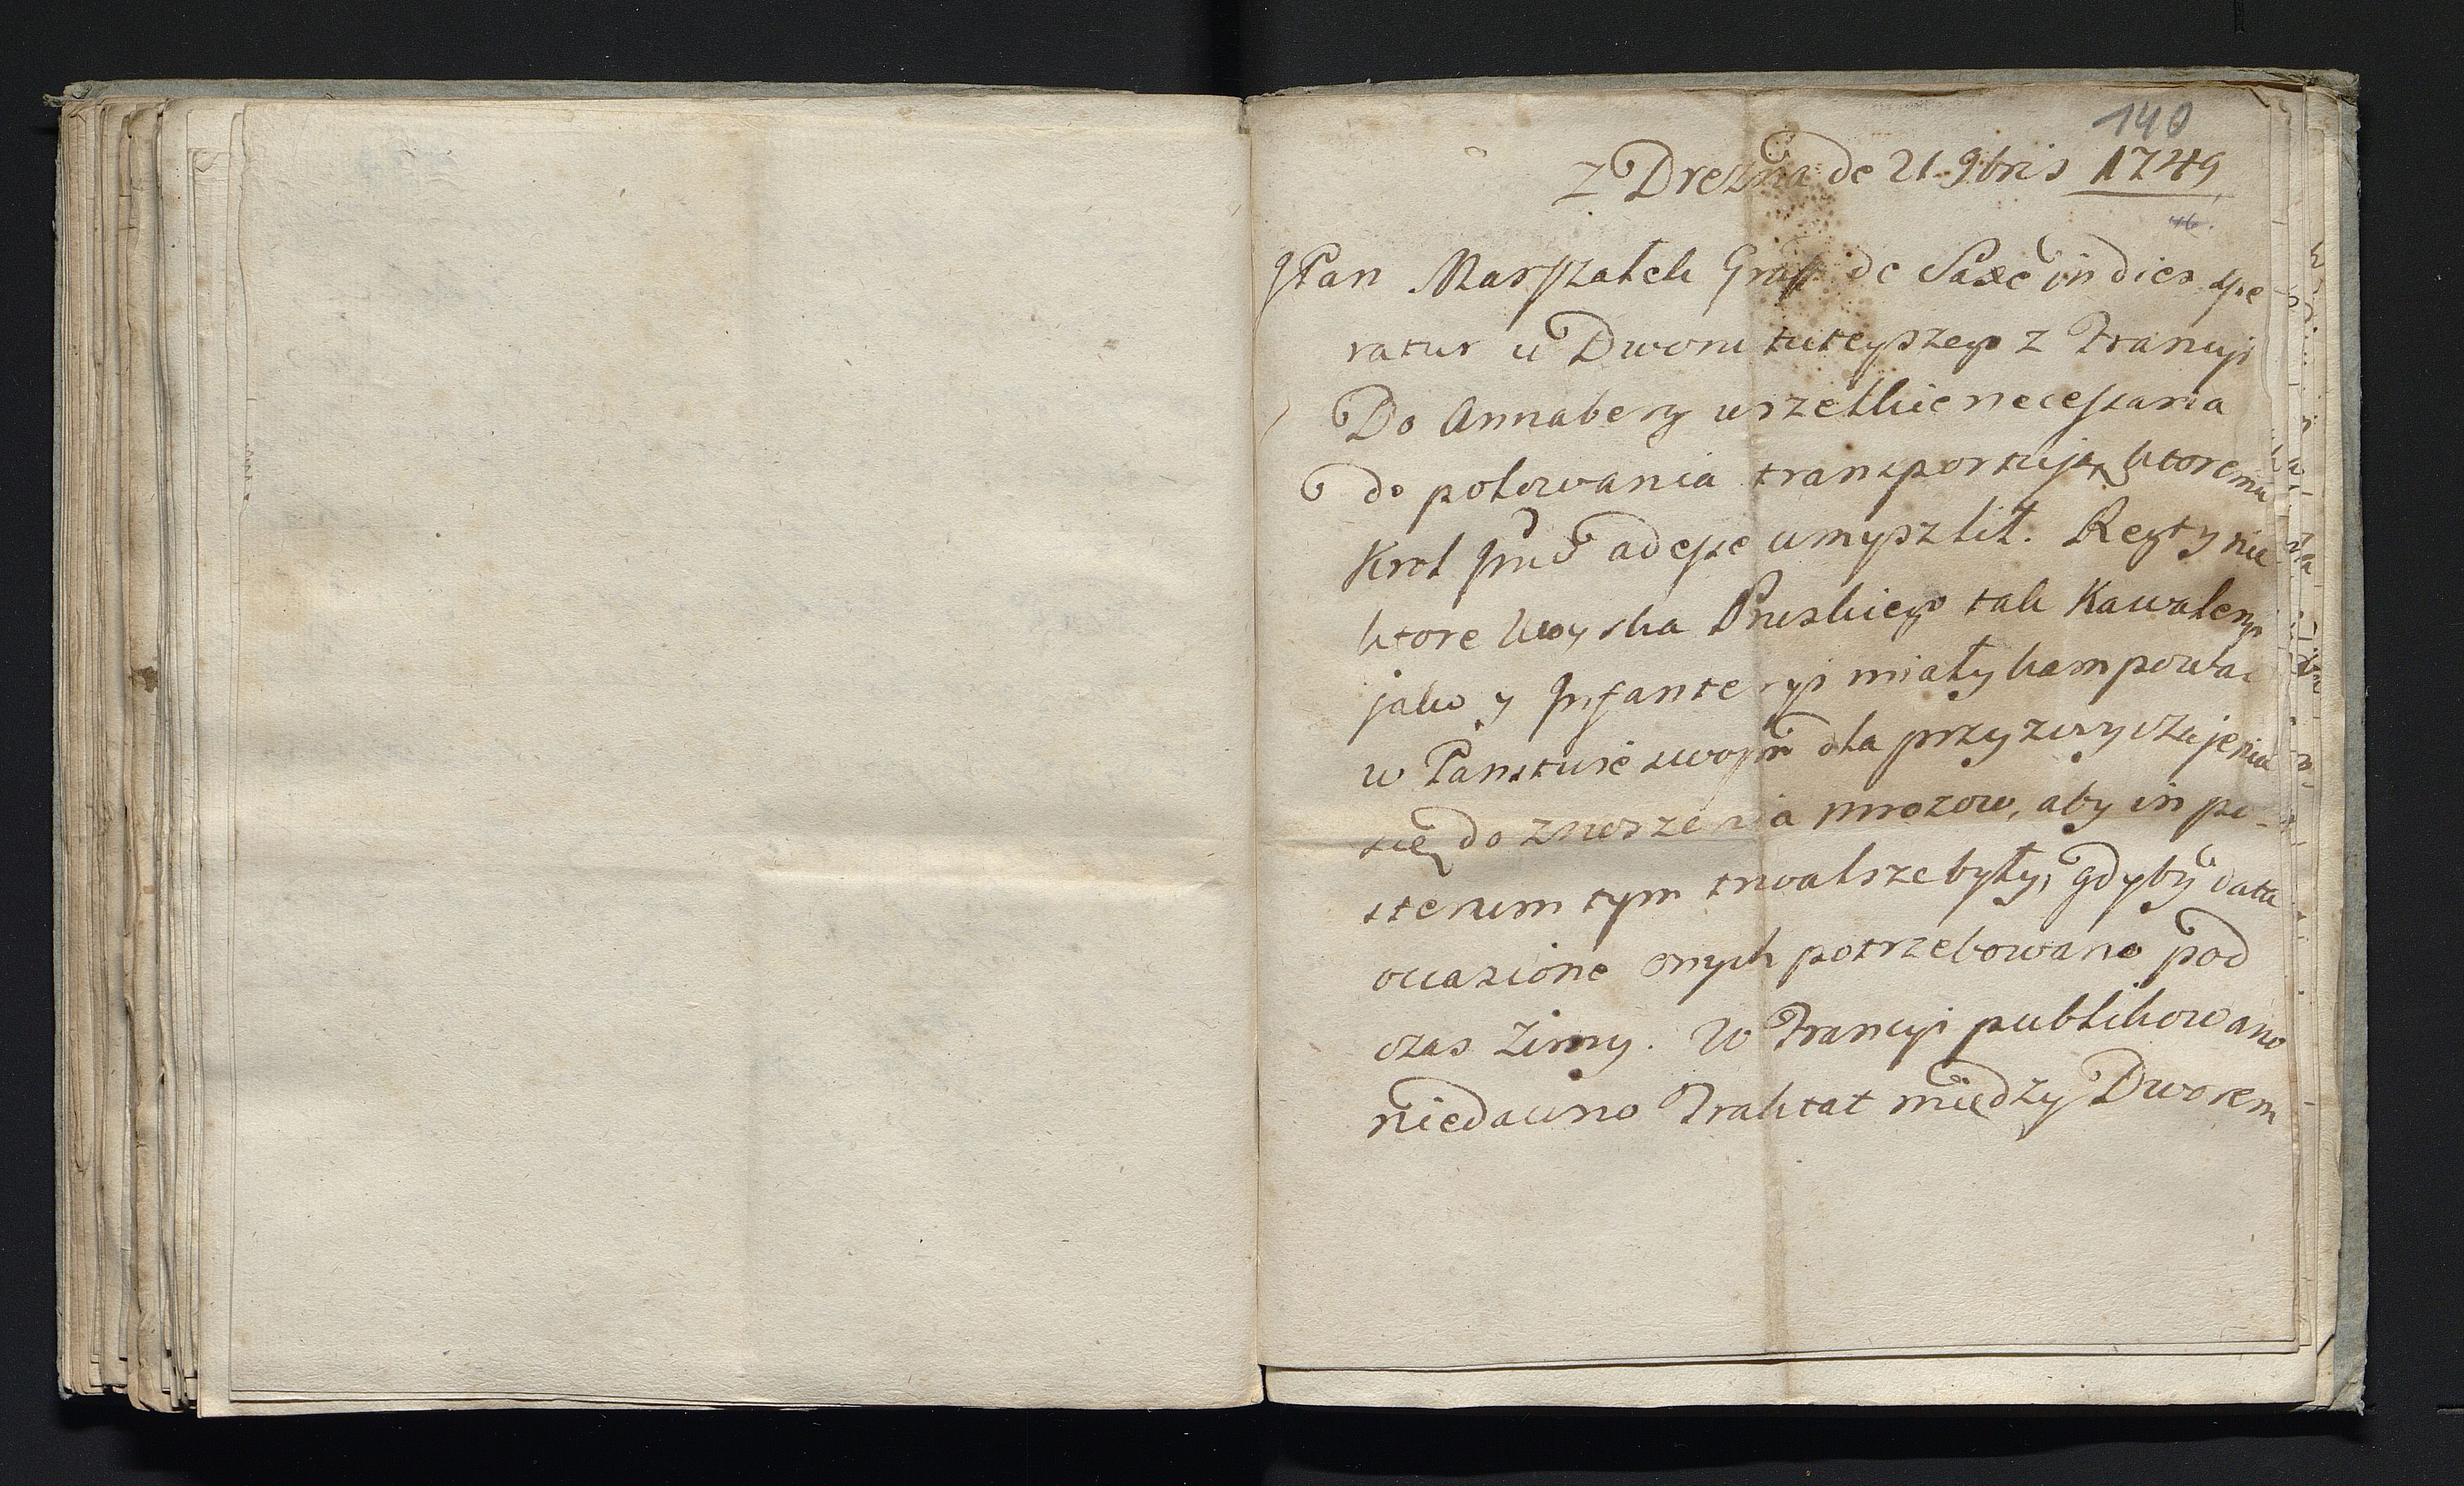 140
Z Drezna de 21 9bris 1749
46.
JPan Marszałek Graff de Saxe in dies spe
ratur u Dworu tuteyszego z Francyi
Do Annaberg wszelkie necessaria
do polowania transportują, ktoremu
Krol Jmć adesse umyszlił. Regty nie
ktore Woyska Pruskiego tak Kawaleryi
jako y Infanteryi miały kampować
w Panstwie swoym dla przyzwyczajenia
się do znoszenia mrozow, aby in po-
sterum tym trwalsze były, gdyby data
occasione onych potrzebowano pod
czas Zimy. W Francyi publikowano
niedawno Traktat między Dworem